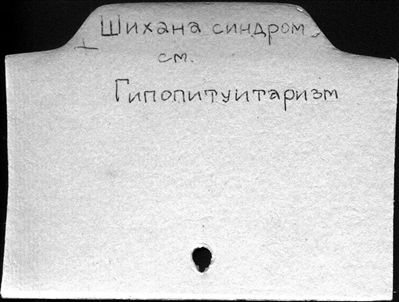 Шихана синдром
см.
Гипопитуитаризм